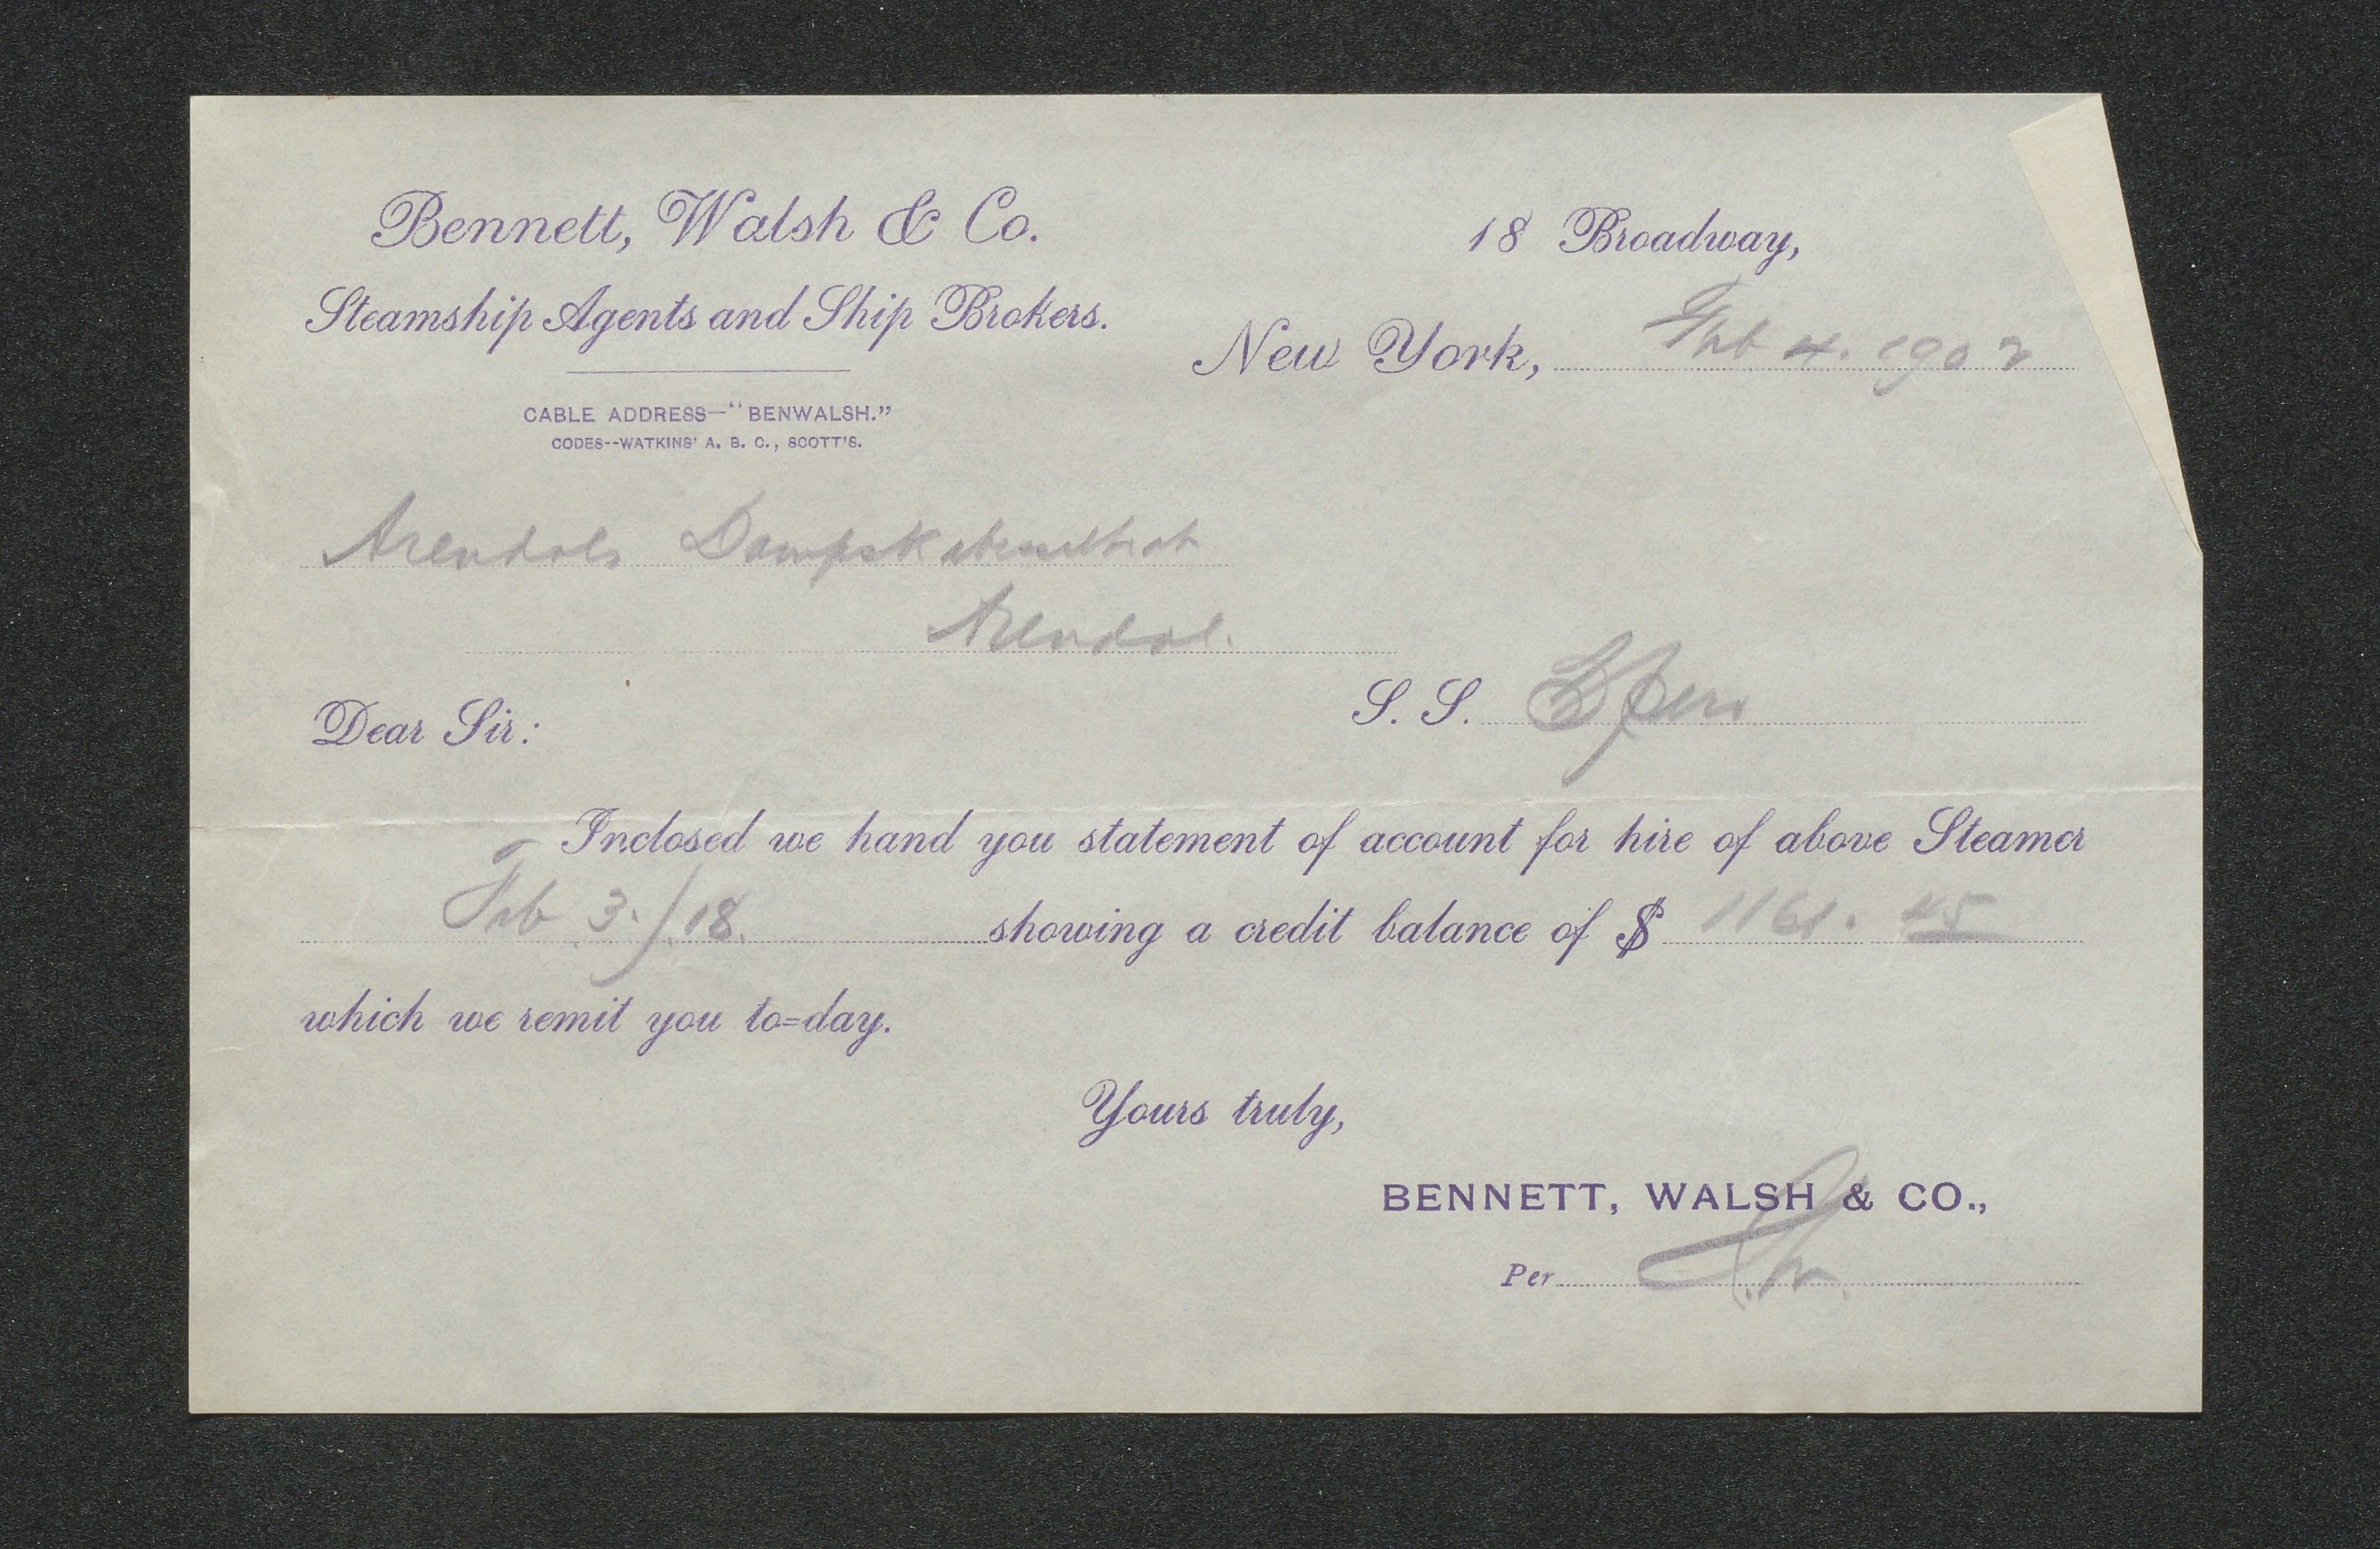 Bennett, Walsh & Co.
Steamship Agents and Ship Brokers.
CABLE ADDRESS—"BENWALSH."
CODES--WATKINS' A. B. C., SCOTT'S.
18 Broadway,
New York, Feb 4. 1902
Arendals Dampskibsselskab
Arendal.
Dear Sir:
S. S.
Inclosed we hand you statement of account for hire of above Steamer
Feb 3./18. showing a credit balance of $ 1161. 45
which we remit you to=day.
Yours truly,
BENNETT, WALSH & CO.,
Per